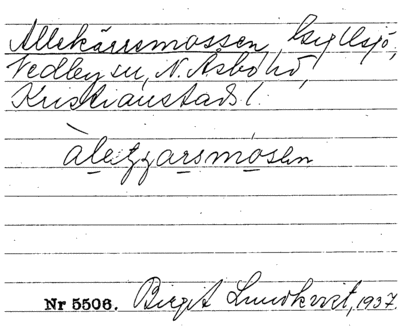 Allekärrsmossen, Gyllsjö,
Vedby sn, N. Åsbo hd,
Kristianstads l.
àlezzarsmosen
Nr 5506. Birgit Lundkvist, 1937.